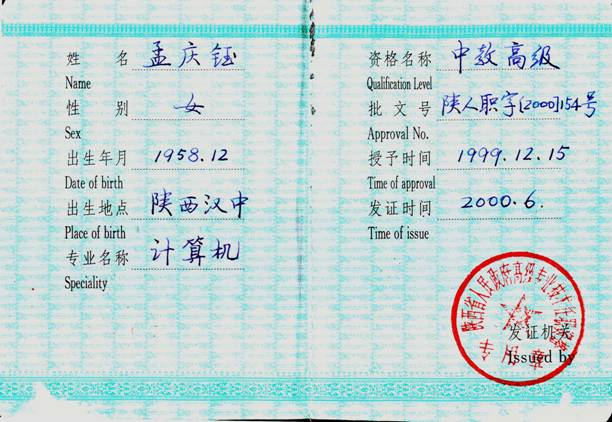 姓 名 孟庆钰
Name
性 别 女
Sex
出生年月 1958.12
Date of birth
出生地点 陕西汉中
Place of birth
专业名称 计算机
Speciality
资格名称 中教高级
Qualification Level
批 文 号 陕人职字[2000]154号
Approval No.
授予时间 1999.12.15
Time of approval
发证时间 2000.6.
Time of issue
发证机关
Issued by